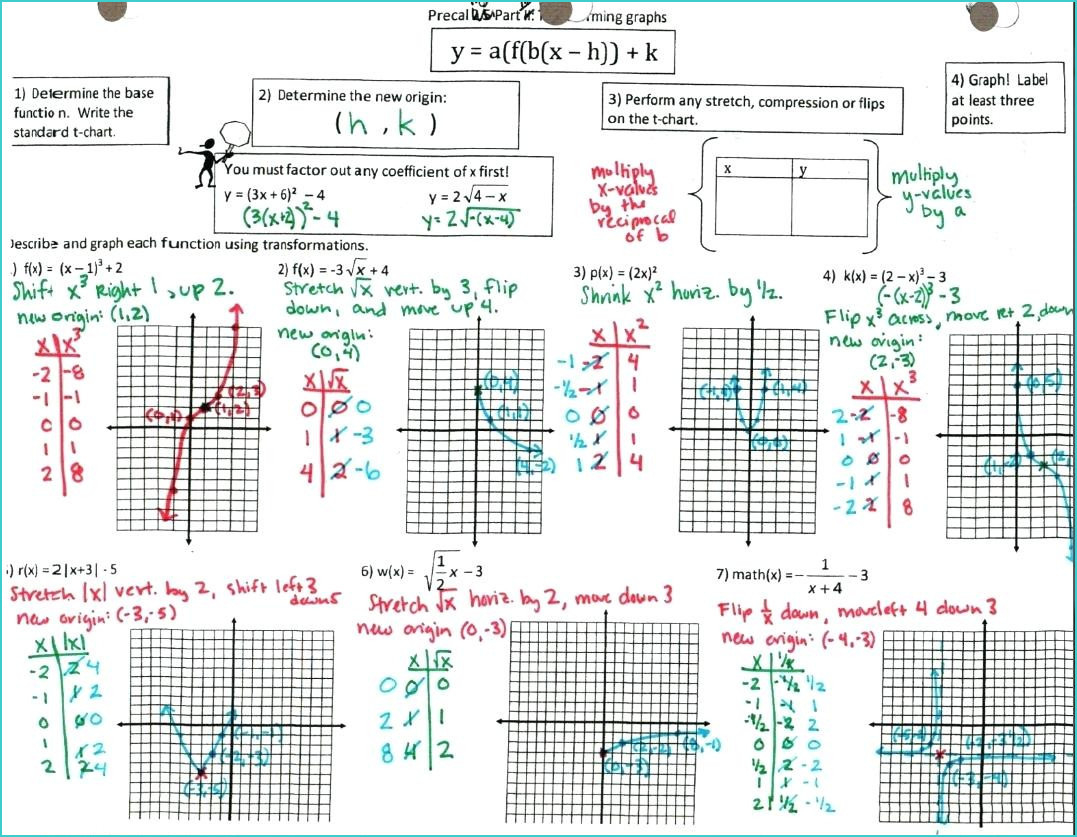 Precal 2.5 Part II: rming graphs
y = a(f(b(x – h)) + k
1) Determine the base
function. Write the
standard t-chart.
2) Determine the new origin:
(h , k)
3) Perform any stretch, compression or flips
on the t-chart.
4) Graph! Label
at least three
points.
You must factor out any coefficient of x first!
y = (3x + 6)² – 4
y = 2√4 – x
(3(x+2))² - 4
y = 2√-(x-4)
multiply
x-values
by the
reciprocal
of b
x y
multiply
y-values
by a
Describe and graph each function using transformations.
) f(x) = (x – 1)³ + 2
Shift x³ Right 1, up 2.
new origin: (1,2)
x x³
-2 -8
-1 -1
0 0
1 1
2 8
(2,3)
(1,2)
(0,1)
2) f(x) = -3√x + 4
Stretch √x vert. by 3, flip
down, and move up 4.
new origin:
(0,4)
x √x
0 0 0
1 1 -3
4 2 -6
(0,4)
(1,1)
(4,-2)
3) p(x) = (2x)²
Shrink x² horiz. by ½.
x x²
-1 -2 4
-½ -1 1
0 0 0
½ 1 1
1 2 4
(-1,4) (1,4)
(0,0)
4) k(x) = (2 – x)³ – 3
(-(x-2))³ - 3
Flip x³ across, move rt 2, down
new origin:
(2,-3)
x x³
2 -2 -8
1 -1 -1
0 0 0
-1 1 1
-2 2 8
(0,5)
(1,-2) (2,
) r(x) = 2|x+3| - 5
Stretch |x| vert. by 2, shift left 3
down 5
new origin: (-3,-5)
x |x|
-2 2 4
-1 1 2
0 0 0
1 1 2
2 2 4
(-1,-1)
(-2,-3)
(-3,-5)
6) w(x) = √½x – 3
Stretch √x horiz. by 2, move down 3
new origin (0,-3)
x √x
0 0 0
2 1 1
8 4 2
(2,-2) (8,-1)
(0,-3)
7) math(x) = – 1/(x + 4) – 3
Flip 1/x down, move left 4 down 3
new origin: (-4,-3)
x 1/x
-2 -½ ½
-1 -1 1
-½ -2 2
0 0 0
½ 2 -2
1 1 -1
2 ½ -½
(-3,-4)